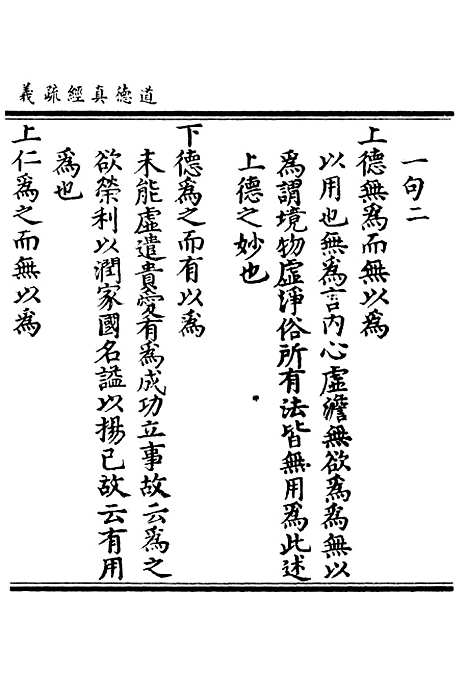 道德真經疏義
一句二
上德無為而無以為
以用也無為言內心虛澹無欲為為無以
為謂境物虛淨俗所有法皆無用為此述
上德之妙也
下德為之而有以為
未能虛遣貴愛有為成功立事故云為之
欲榮利以潤家國名謚以揚己故云有用
為也
上仁為之而無以為